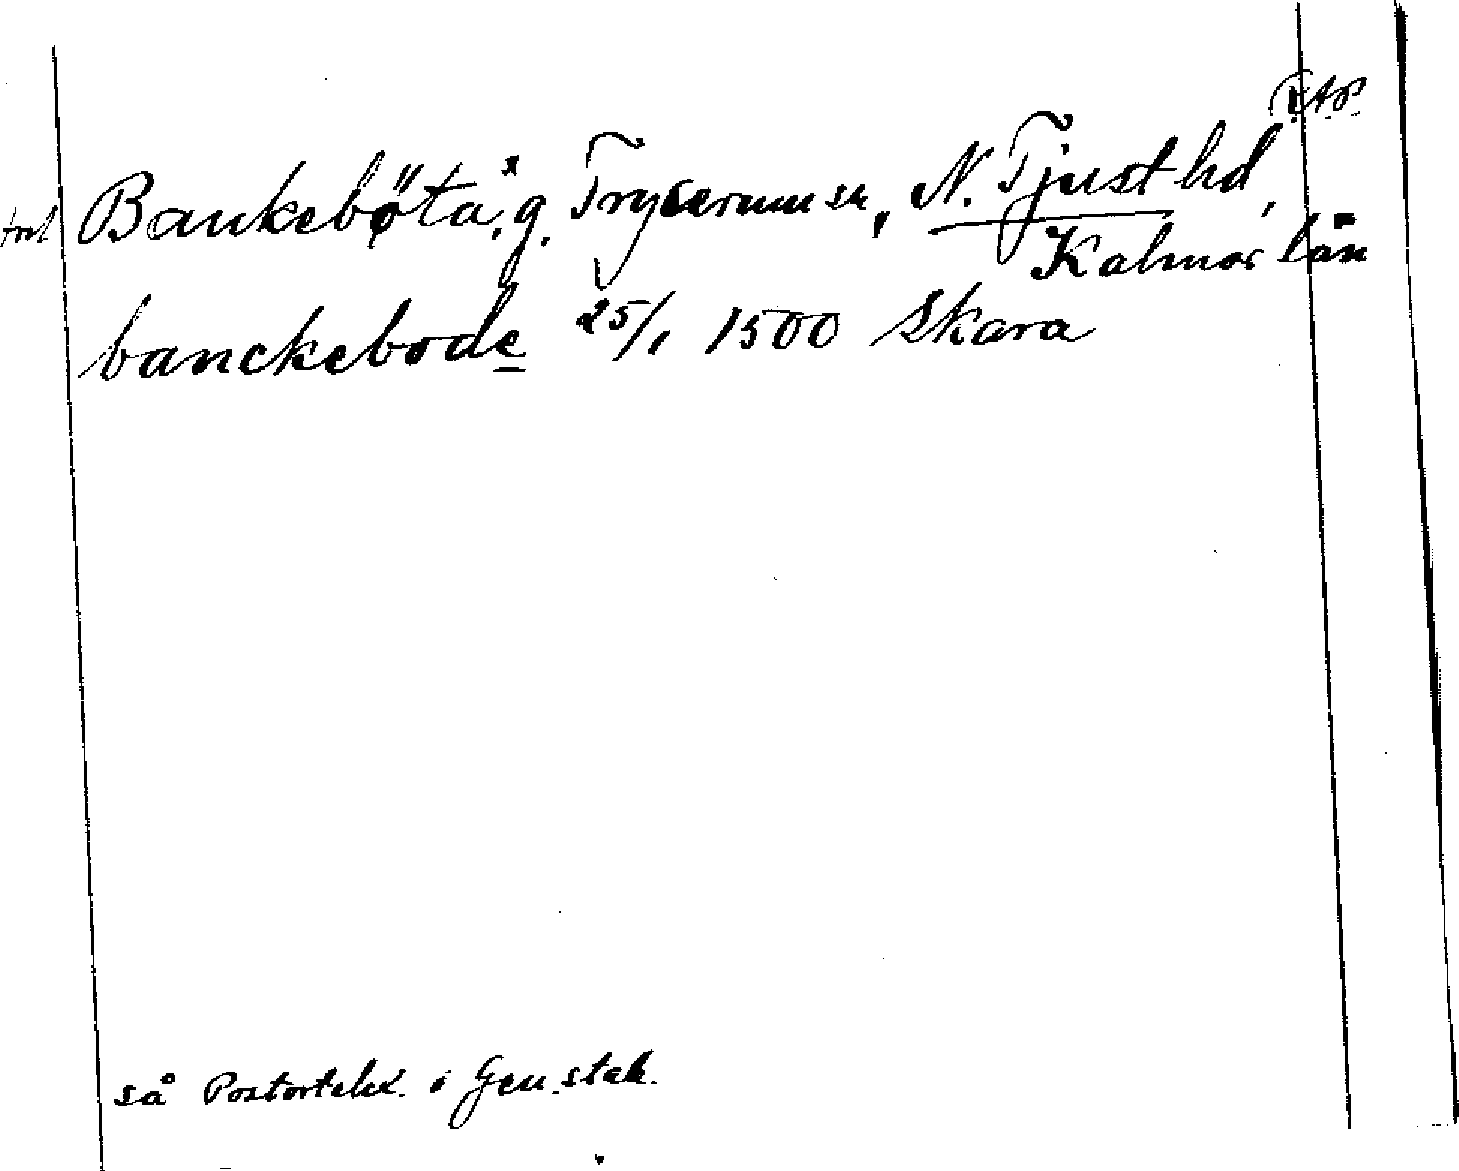 Bankeböta,ˣ g. Tryserum sn, N. Tjust hd,
Kalmar län
banckebode 25/1 1500 Skara
så Postortslex. o Gen.stab.